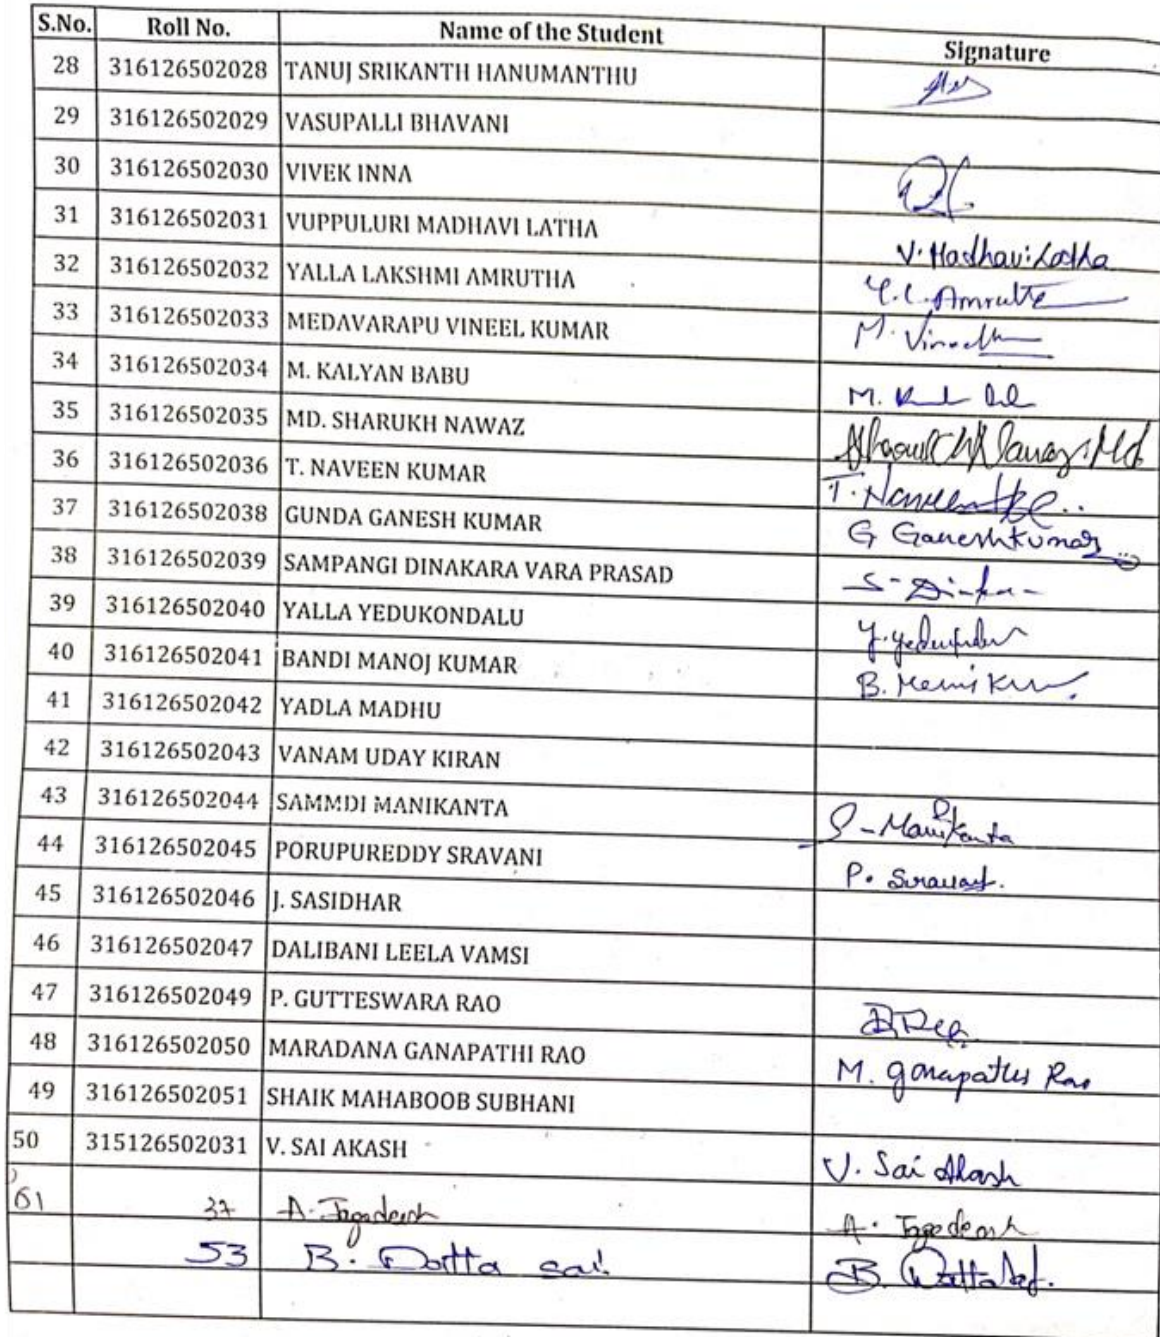 S.No. Roll No. Name of the Student Signature
28 316126502028 TANUJ SRIKANTH HANUMANTHU
29 316126502029 VASUPALLI BHAVANI
30 316126502030 VIVEK INNA
31 316126502031 VUPPULURI MADHAVI LATHA V. Madhavi Latha
32 316126502032 YALLA LAKSHMI AMRUTHA Y.L. Amrutha
33 316126502033 MEDAVARAPU VINEEL KUMAR M.
34 316126502034 M. KALYAN BABU M.
35 316126502035 MD. SHARUKH NAWAZ Nawaz Md
36 316126502036 T. NAVEEN KUMAR T. Naveen
37 316126502038 GUNDA GANESH KUMAR G Ganeshkumar
38 316126502039 SAMPANGI DINAKARA VARA PRASAD S-
39 316126502040 YALLA YEDUKONDALU Y.
40 316126502041 BANDI MANOJ KUMAR B.
41 316126502042 YADLA MADHU
42 316126502043 VANAM UDAY KIRAN
43 316126502044 SAMMDI MANIKANTA S-Manikanta
44 316126502045 PORUPUREDDY SRAVANI P. Sravani.
45 316126502046 J. SASIDHAR
46 316126502047 DALIBANI LEELA VAMSI
47 316126502049 P. GUTTESWARA RAO
48 316126502050 MARADANA GANAPATHI RAO M. ganapathi Rao
49 316126502051 SHAIK MAHABOOB SUBHANI
50 315126502031 V. SAI AKASH V. Sai Akash
51 37 A. Jagadeesh A. Jagadeesh
53 B. Datta sai B. Datta